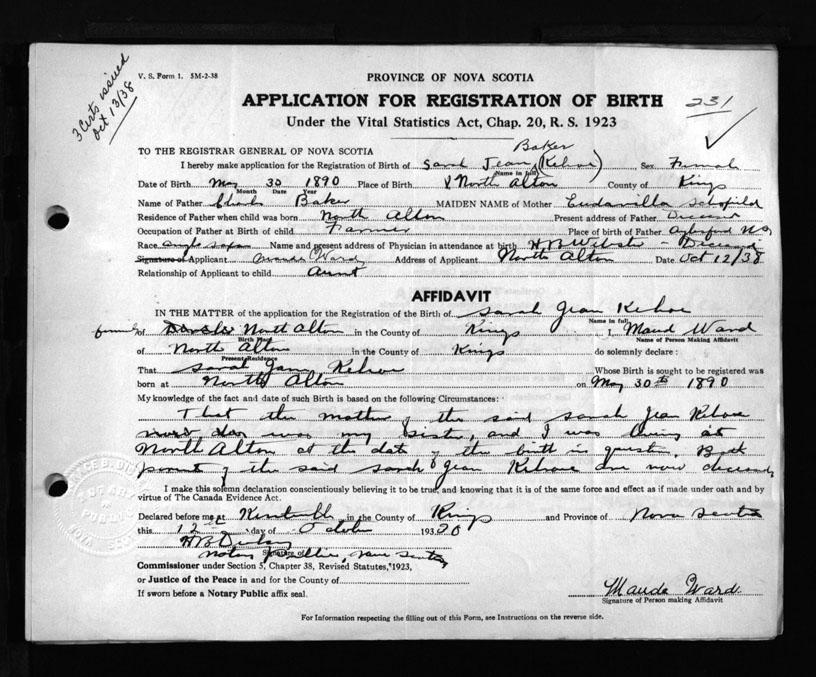 3 Certs issued
Oct 13/38
V. S. Form 1. 5M-2-38
PROVINCE OF NOVA SCOTIA
APPLICATION FOR REGISTRATION OF BIRTH
231
Under the Vital Statistics Act, Chap. 20, R. S. 1923
TO THE REGISTRAR GENERAL OF NOVA SCOTIA
Baker
I hereby make application for the Registration of Birth of Sarah Jean (Kehoe) Sex Female
Name in full
Date of Birth May 30 1890 Place of Birth North Alton County of Kings
Month Date Year
Name of Father Charles Baker MAIDEN NAME of Mother Schofield
Residence of Father when child was born North Alton Present address of Father Deceased
Occupation of Father at Birth of child Farmer Place of birth of Father Aylesford NS
Race Anglo Saxon Name and present address of Physician in attendance at birth H B Webster - Deceased
Signature of Applicant Maude Ward Address of Applicant North Alton Date Oct 12/38
Relationship of Applicant to child Aunt
AFFIDAVIT
IN THE MATTER of the application for the Registration of the Birth of Sarah Jean Kehoe
Name in full
formerly of North Alton in the County of Kings I, Maud Ward
Birth Place Name of Person Making Affidavit
of North Alton in the County of Kings do solemnly declare:
Present Residence
That Sarah Jean Kehoe Whose Birth is sought to be registered was
born at North Alton on May 30th 1890
My knowledge of the fact and date of such Birth is based on the following Circumstances:
That the mother of the said Sarah Jean Kehoe
was my sister, and I was living at
North Alton at the date of the birth in question. Both
parents of the said Sarah Jean Kehoe are now deceased
I make this solemn declaration conscientiously believing it to be true, and knowing that it is of the same force and effect as if made under oath and by
virtue of The Canada Evidence Act.
Declared before me at Kentville in the County of Kings and Province of Nova Scotia
this 12th day of October 193
Signature of
Notary Public, Nova Scotia
Commissioner under Section 5, Chapter 38, Revised Statutes, 1923,
or Justice of the Peace in and for the County of
If sworn before a Notary Public affix seal.
Maude Ward
Signature of Person making Affidavit
For Information respecting the filling out of this Form, see Instructions on the reverse side.